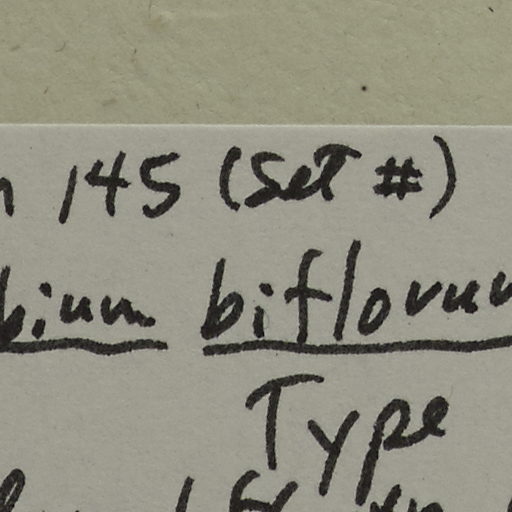 145 (Set #)
bium biflorum
Type